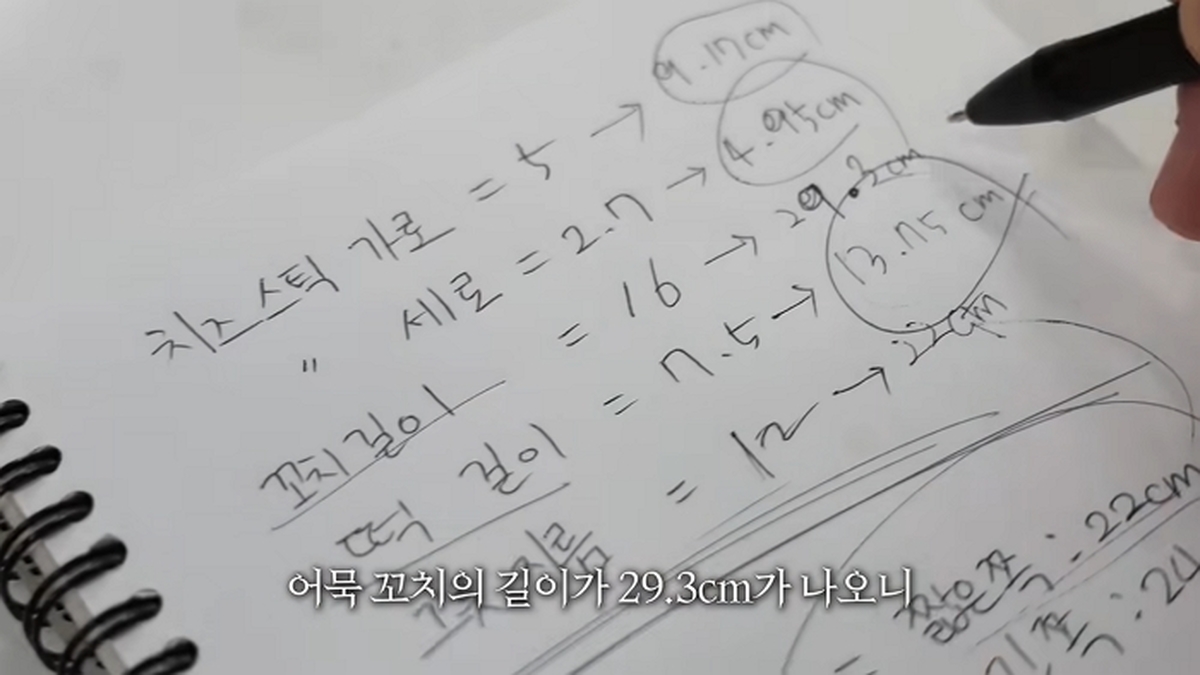 치즈스틱 가로 = 5 → 9.17cm
〃 세로 = 2.7 → 4.95cm
꼬치 길이 = 16 → 29.3cm
떡 길이 = 7.5 → 13.75cm
= 12 → 22cm
짧은쪽 : 22cm
쪽 : 24
어묵 꼬치의 길이가 29.3cm가 나오니